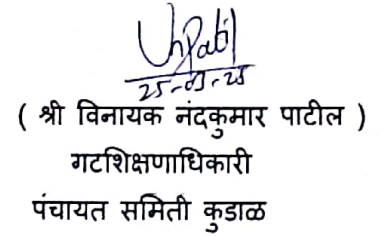 VnPatil
25-09-25
( श्री विनायक नंदकुमार पाटील )
गटशिक्षणाधिकारी
पंचायत समिती कुडाळ